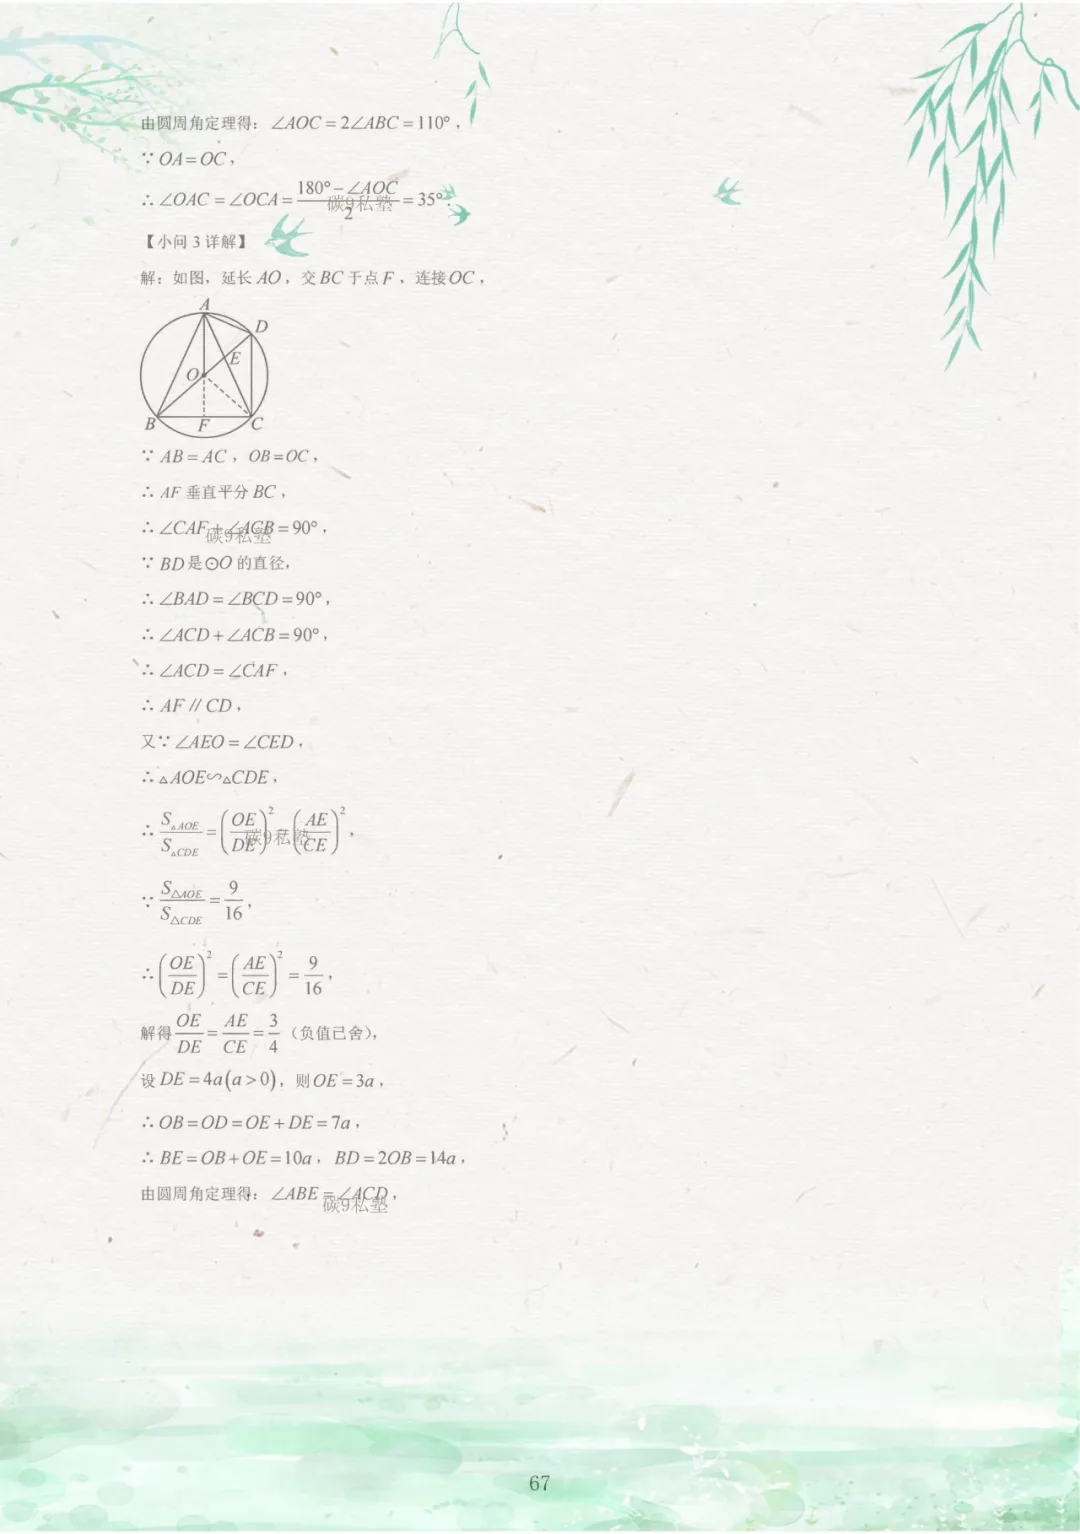 由圆周角定理得：∠AOC = 2∠ABC = 110°，
∵ OA = OC，
∴ ∠OAC = ∠OCA = (180° − ∠AOC)/2 = 35°．
碳9私塾
【小问 3 详解】
解：如图，延长 AO，交 BC 于点 F，连接 OC，
A
D
E
O
B
F
C
∵ AB = AC，OB = OC，
∴ AF 垂直平分 BC，
∴ ∠CAF + ∠ACB = 90°，
碳9私塾
∵ BD 是 ⊙O 的直径，
∴ ∠BAD = ∠BCD = 90°，
∴ ∠ACD + ∠ACB = 90°，
∴ ∠ACD = ∠CAF，
∴ AF // CD，
又∵ ∠AEO = ∠CED，
∴ △AOE∽△CDE，
∴ S△AOE/S△CDE = (OE/DE)² = (AE/CE)²，
碳9私塾
∵ S△AOE/S△CDE = 9/16，
∴ (OE/DE)² = (AE/CE)² = 9/16，
解得 OE/DE = AE/CE = 3/4（负值已舍），
设 DE = 4a(a > 0)，则 OE = 3a，
∴ OB = OD = OE + DE = 7a，
∴ BE = OB + OE = 10a，BD = 2OB = 14a，
由圆周角定理得：∠ABE = ∠ACD，
碳9私塾
67